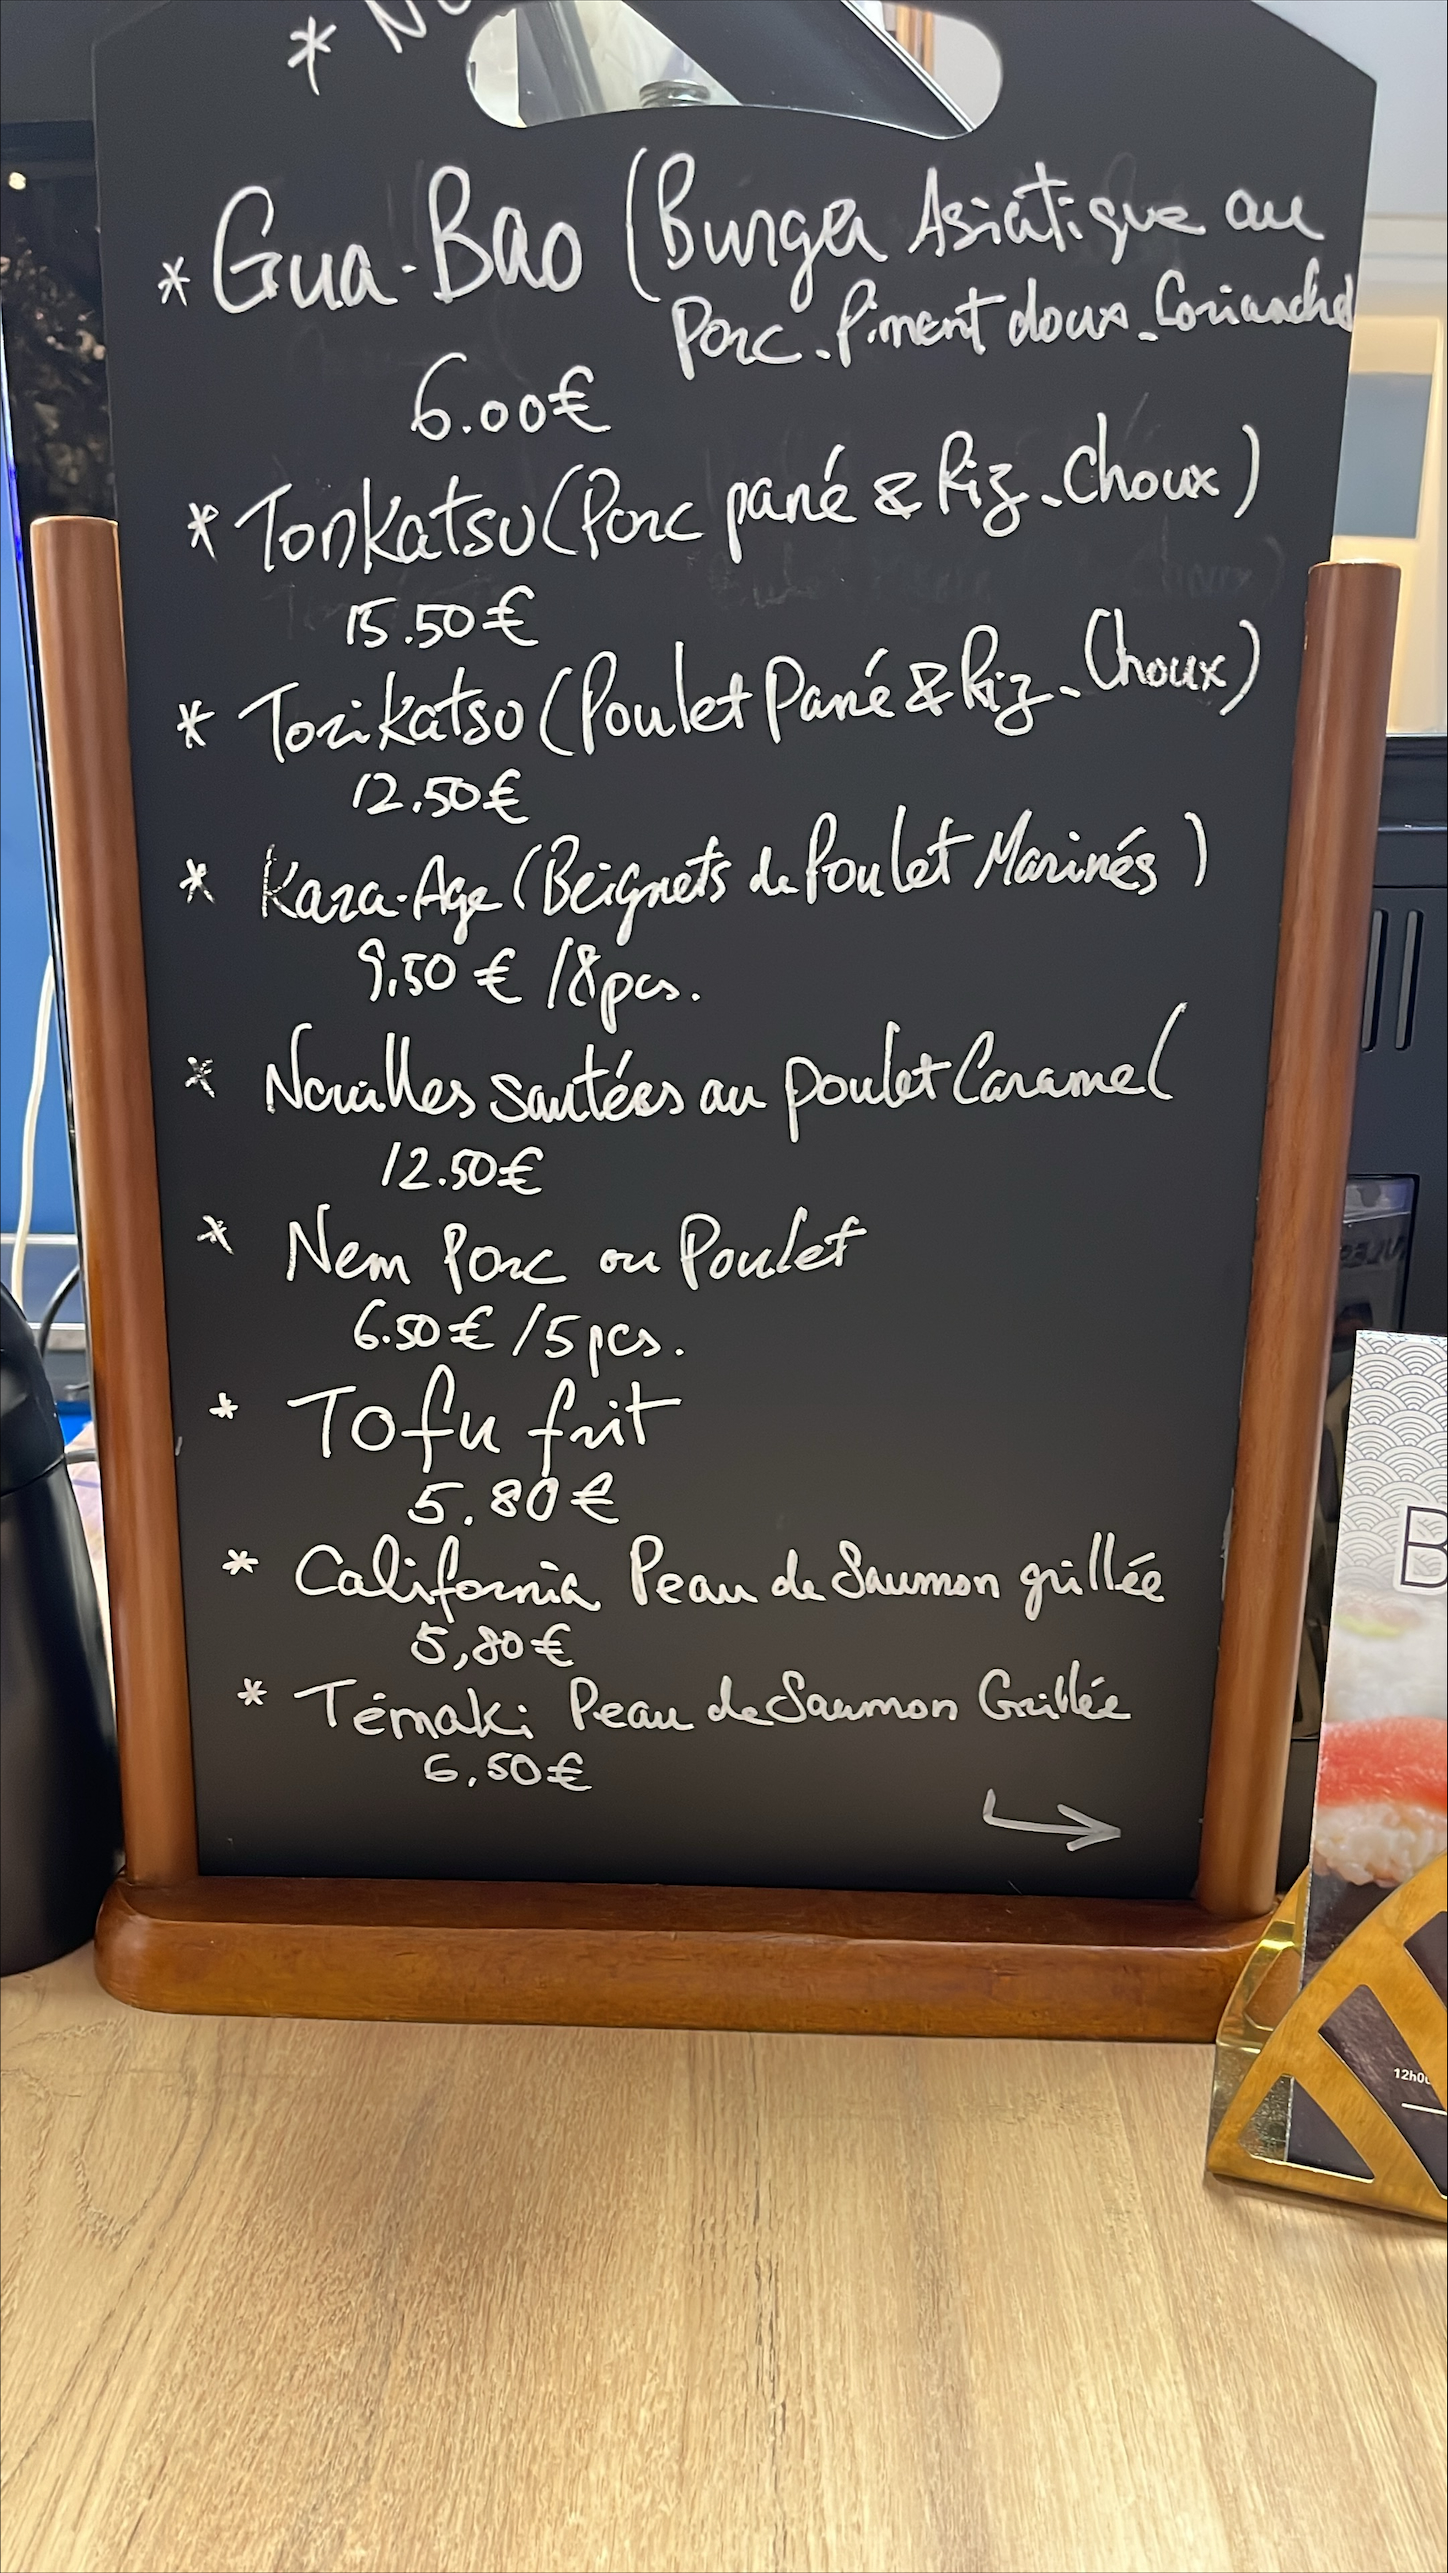 * Gua-Bao (Burger Asiatique au
Porc. Piment doux. Coriandre)
6.00€
* Tonkatsu (Porc pané & Riz. Choux)
15.50€
* Torikatsu (Poulet Pané & Riz. Choux)
12.50€
* Kara-Age (Beignets de Poulet Marinés)
9,50 € /8pcs.
* Nouilles sautées au poulet Caramel
12.50€
* Nem Porc ou Poulet
6.50€ /5pcs.
* Tofu frit
5.80€
* California Peau de Saumon grillée
5,80€
* Témaki Peau de Saumon Grillée
6,50€
B